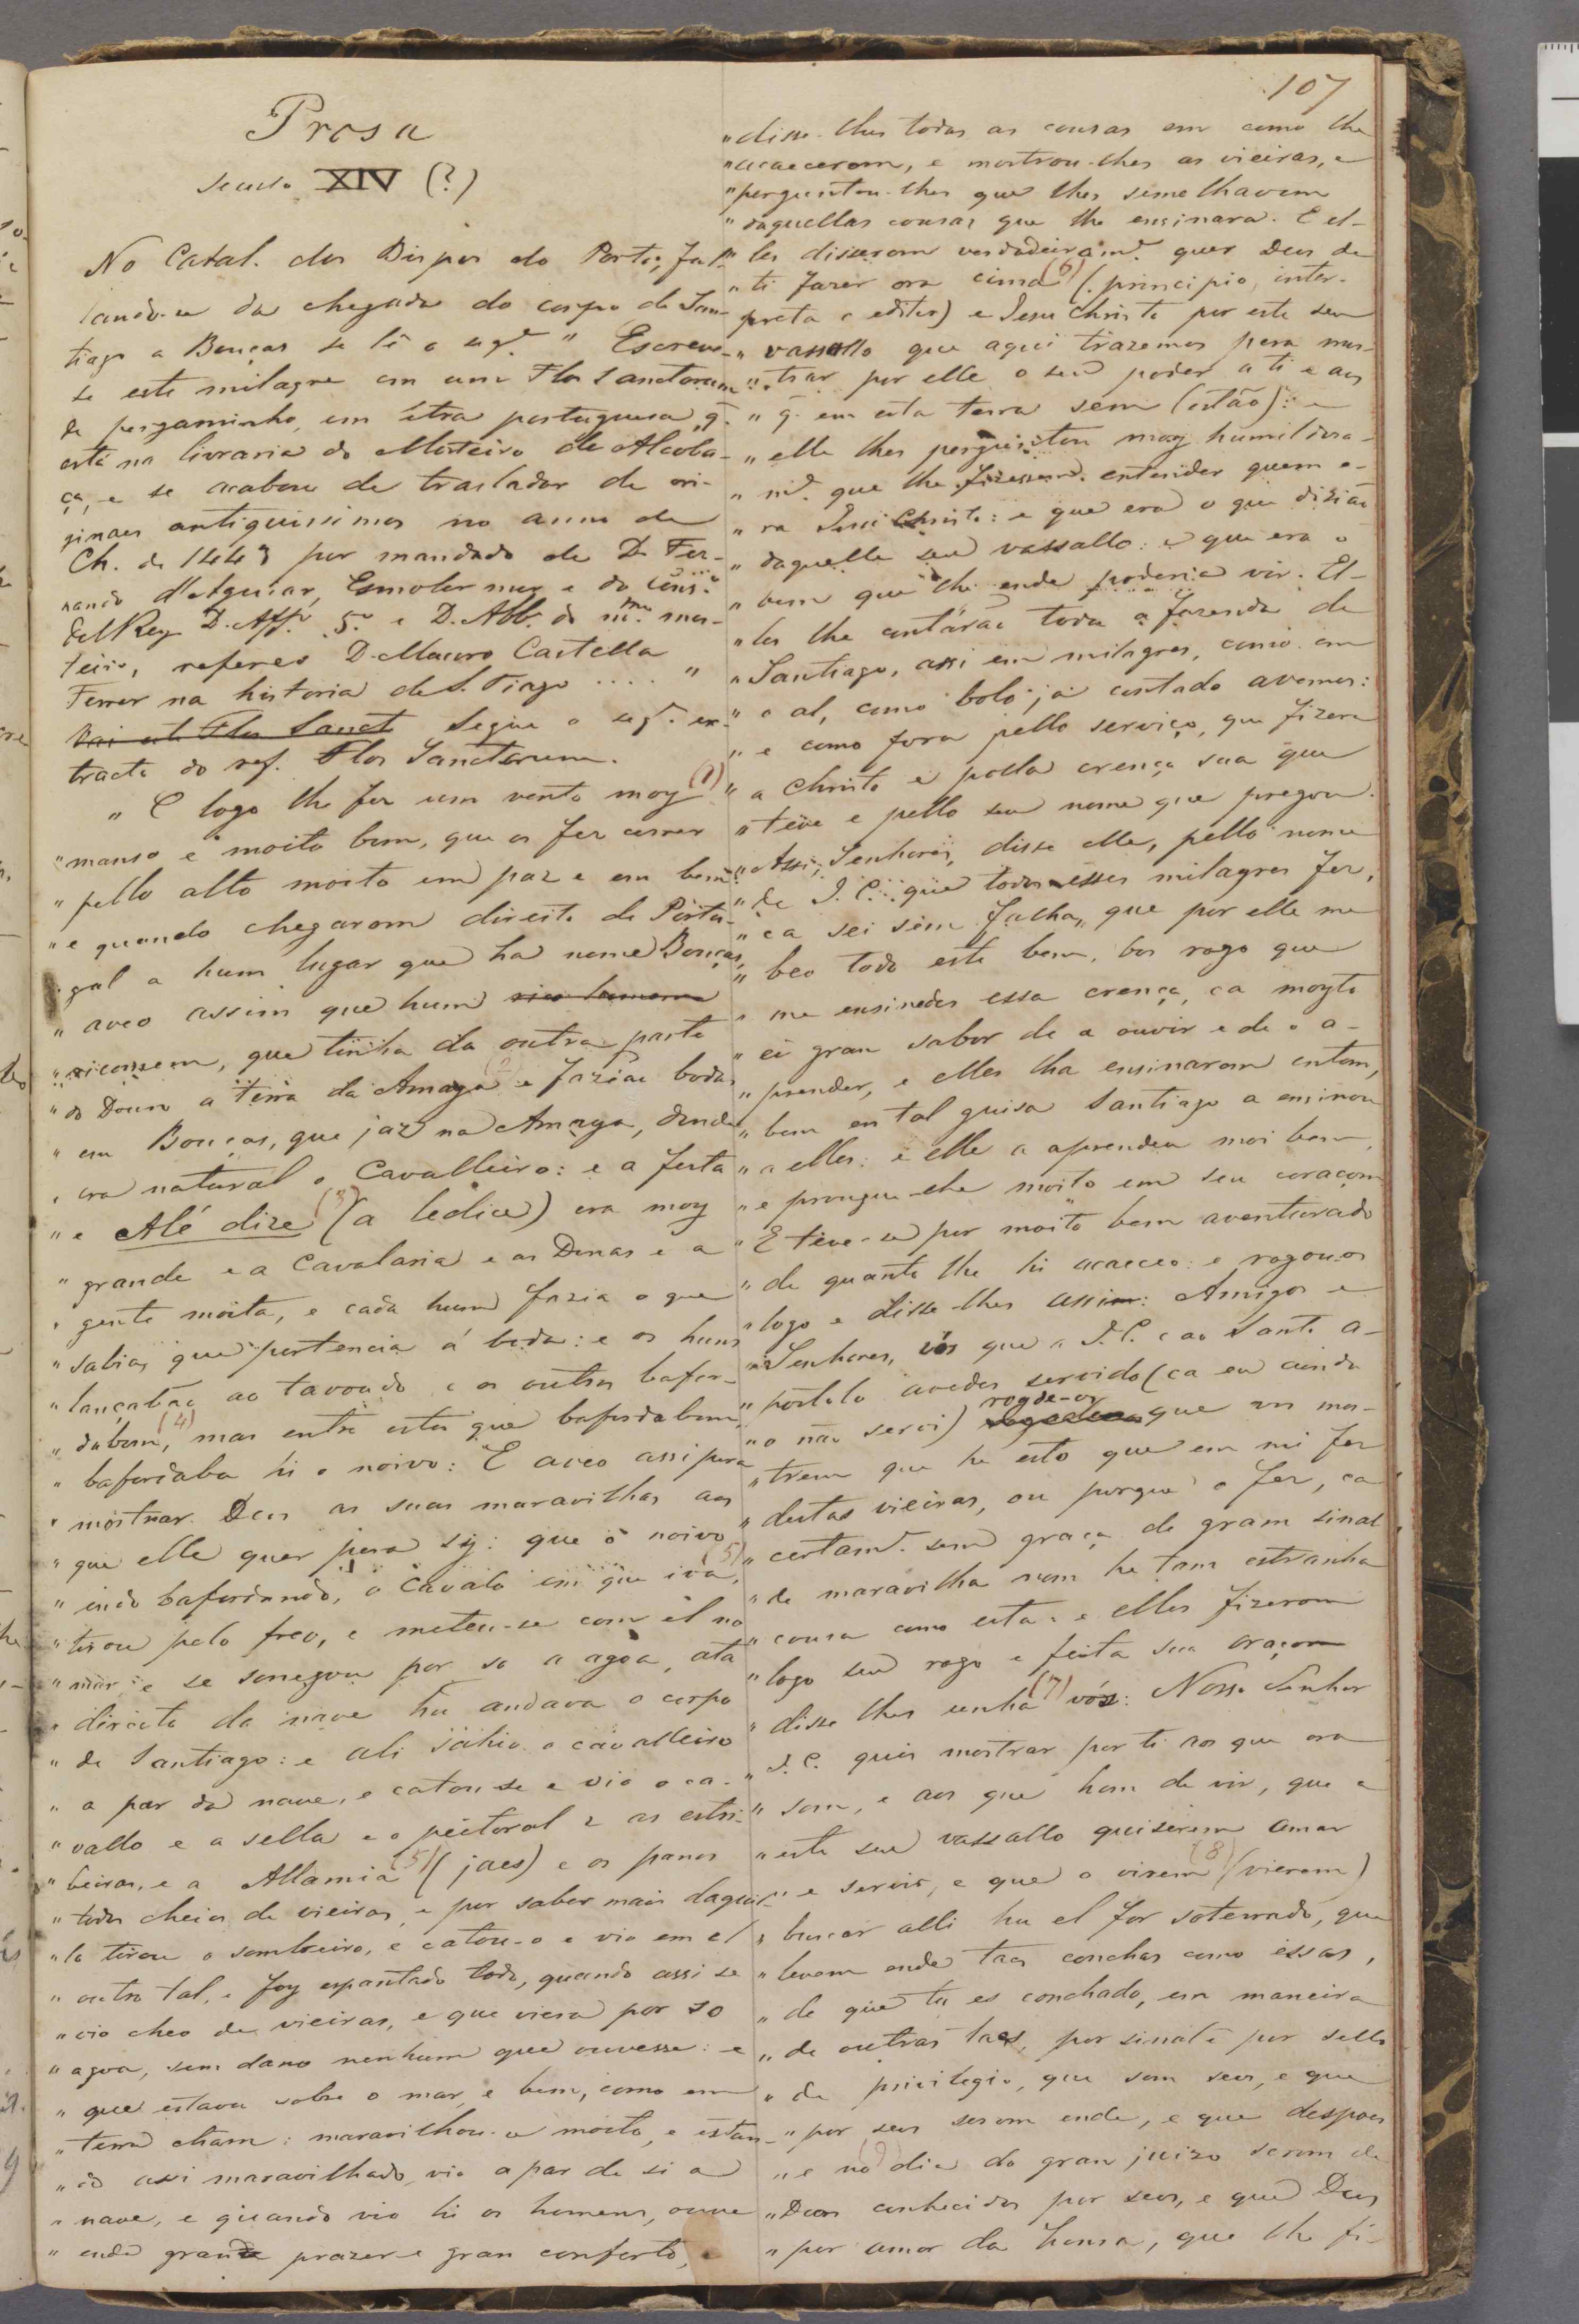 107
Prosa
Seculo XIV (?)
No Catal. dos Bispos do Porto, fal-
lando-se da chegada do corpo de San-
tiago a Bouças se lê o seg.te " Escreve-
se este milagre em um Flos Sanctorum
de pergaminho, em letra portuguesa q.
está na livraria do Mosteiro de Alcoba-
ça, e se acabou de trasladar de ori-
ginaes antiquissimos no anno de
Ch. de 1443 por mandado de D. Fer-
nando d'Aguiar, Esmoler mor e do cons.o
del Rey D. Aff.o 5.o e D. Abb. do m.mo mos-
teiro, referes D. Mauro Castella
Ferrer na historia de S. Tiago .... "
Vai et Flos Sanct Segue o seg.te ex-
tracto do ref. Flos Sanctorum.
" E logo lhe fez um vento moy (1)
" manso e moito bom, que os fez correr
" pello alto moito em paz e em bem:
" e quando chegarom direito de Portu-
gal a hum lugar que ha nome Bouças,
" aveo assim que hum rico homem
" ricomem, que tinha da outra parte
" do Douro a terra da Amaya (2) e faziae bodas
" em Bouças, que jaz na Amaya, donde
" era natural o Cavalleiro: e a festa
" e Alé dize (3) (a ledice) era moy
" grande e a Cavalaria e as Donas e a
" gente moita, e cada hum fazia o que
" sabia, que pertencia á boda: e os huns
" lançabão ao tavoado e os outros bafor-
" dabam, (4) mas entre estes que bafordabam,
" bafordaba hi o noivo: E aveo assi pera
" mostrar Deos as suas maravilhas aos
" que elle quer pera sy: que o noivo
" indo bafordando, o cavalo em que iva, (5)
" tirou pelo freo, e meteu-se com el no
" mar: e se sonegou por so a agoa, atá
" direito da nave hu andava o corpo
" de Santiago: e ali sahio o cavalleiro
" a par da nave, e catou-se e vio o ca-
" vallo e a sella e o peitoral e as estri-
" beiras, e a Allamia (5) (jaes) e os panos
" todos cheios de vieiras, e por saber mais daquil-
" lo tirou o sombreiro, e catou-o e vio em el
" outro tal, e foy espantado todo, quando assi se
" vio cheo de vieiras, e que viera por so
" agoa, sem dano nenhum que ouvesse: e
" que estava sobre o mar, e bem, como em
" terra cham: maravilhou-se moito, e estan-
" do assi maravilhado, vio a par de si a
" nave, e quando vio hi os homens, ouve
" ende grande prazer e gran conforto, e
" disse-lhes todas as cousas em como lhe
" acaecerom, e mostrou-lhes as vieiras, e
" perguntou-lhes que lhes semelhavem
" daquellas cousas que lhe ensinara. E el-
" les disserom verdadeiram.te quer Deos de
" ti fazer ora cima (6) (principio, inter-
preta o editor) e Jesu Christo por este seu
" vassallo que aqui trazemos pera mos-
" trar por elle o seu poder a ti e aos
" q. em esta terra sem (estão): e
" elle lhes perguntou moy humildosa-
" m.te que lhe fizessem entender quem e-
" ra Jesu Christo: e que era o que diziao
" daquelle seu vassallo: e que era o
" bem que lhe ende poderia vir. El-
" les lhe contárão toda a fazenda de
" Santiago, assi em milagres, como em
" o al, como bolo já contado avemos:
" e como fora pello serviço, que fizera
" a Christo e polla crença sua que
" teve e pello seu nome que pregou.
" Assi, Senhores, disse elle, pello nome
" de J. C. que todos esses milagres fez,
" ca sei sem falha, que por elle me
" beo todo este bem, bos rogo que
" me ensinedes essa crença, ca moyto
" ei gran sabor de a ouvir e de o a-
" prender, e elles lha ensinarom entom,
" bem en tal guisa Santiago a ensinou
" a elles: e elle a aprendeu moi bem,
" e prougue-lhe moito em seu coraçom
" E teve-se por moito bem aventurado
" de quanto lhe hi acaeceo: e rogou-os
" logo e disse-lhes assim: Amigos e
" Senhores, vós que a J. C. e ao Santo a-
" postolo avedes servido (ca eu ainda
" o não servi) rogde-os que vos mos-
" trem que he esto que em mi fez
" destas vieiras, ou porque o fez, ca
" certam.te sem graça de gram sinal
" de maravilha nom he tam estranha
" cousa como esta: e elles fizerom
" logo seu rogo e feita sua oraçom
" disse lhes unha (7) vóz: Nosso Senhor
" J. C. quis mostrar por ti aos que ora
" som, e aos que hom de vir, que a
" este seu vassallo quiserem amar
" e servir, e que o virem (8) (vierem)
" buscar alli hu el for soterrado, que
" levem ende taes conchas como essas,
" de que tu es conchado, em maneira
" de outras taes, por sinal e por sello
" de privilegio, que som seus, e que
" por seus serom ende, e que despoes
" e no (9) dia do gran juizo serom de
" Deos conhecidos por seus, e que Deos
" por amor da honra, que lhe fi-